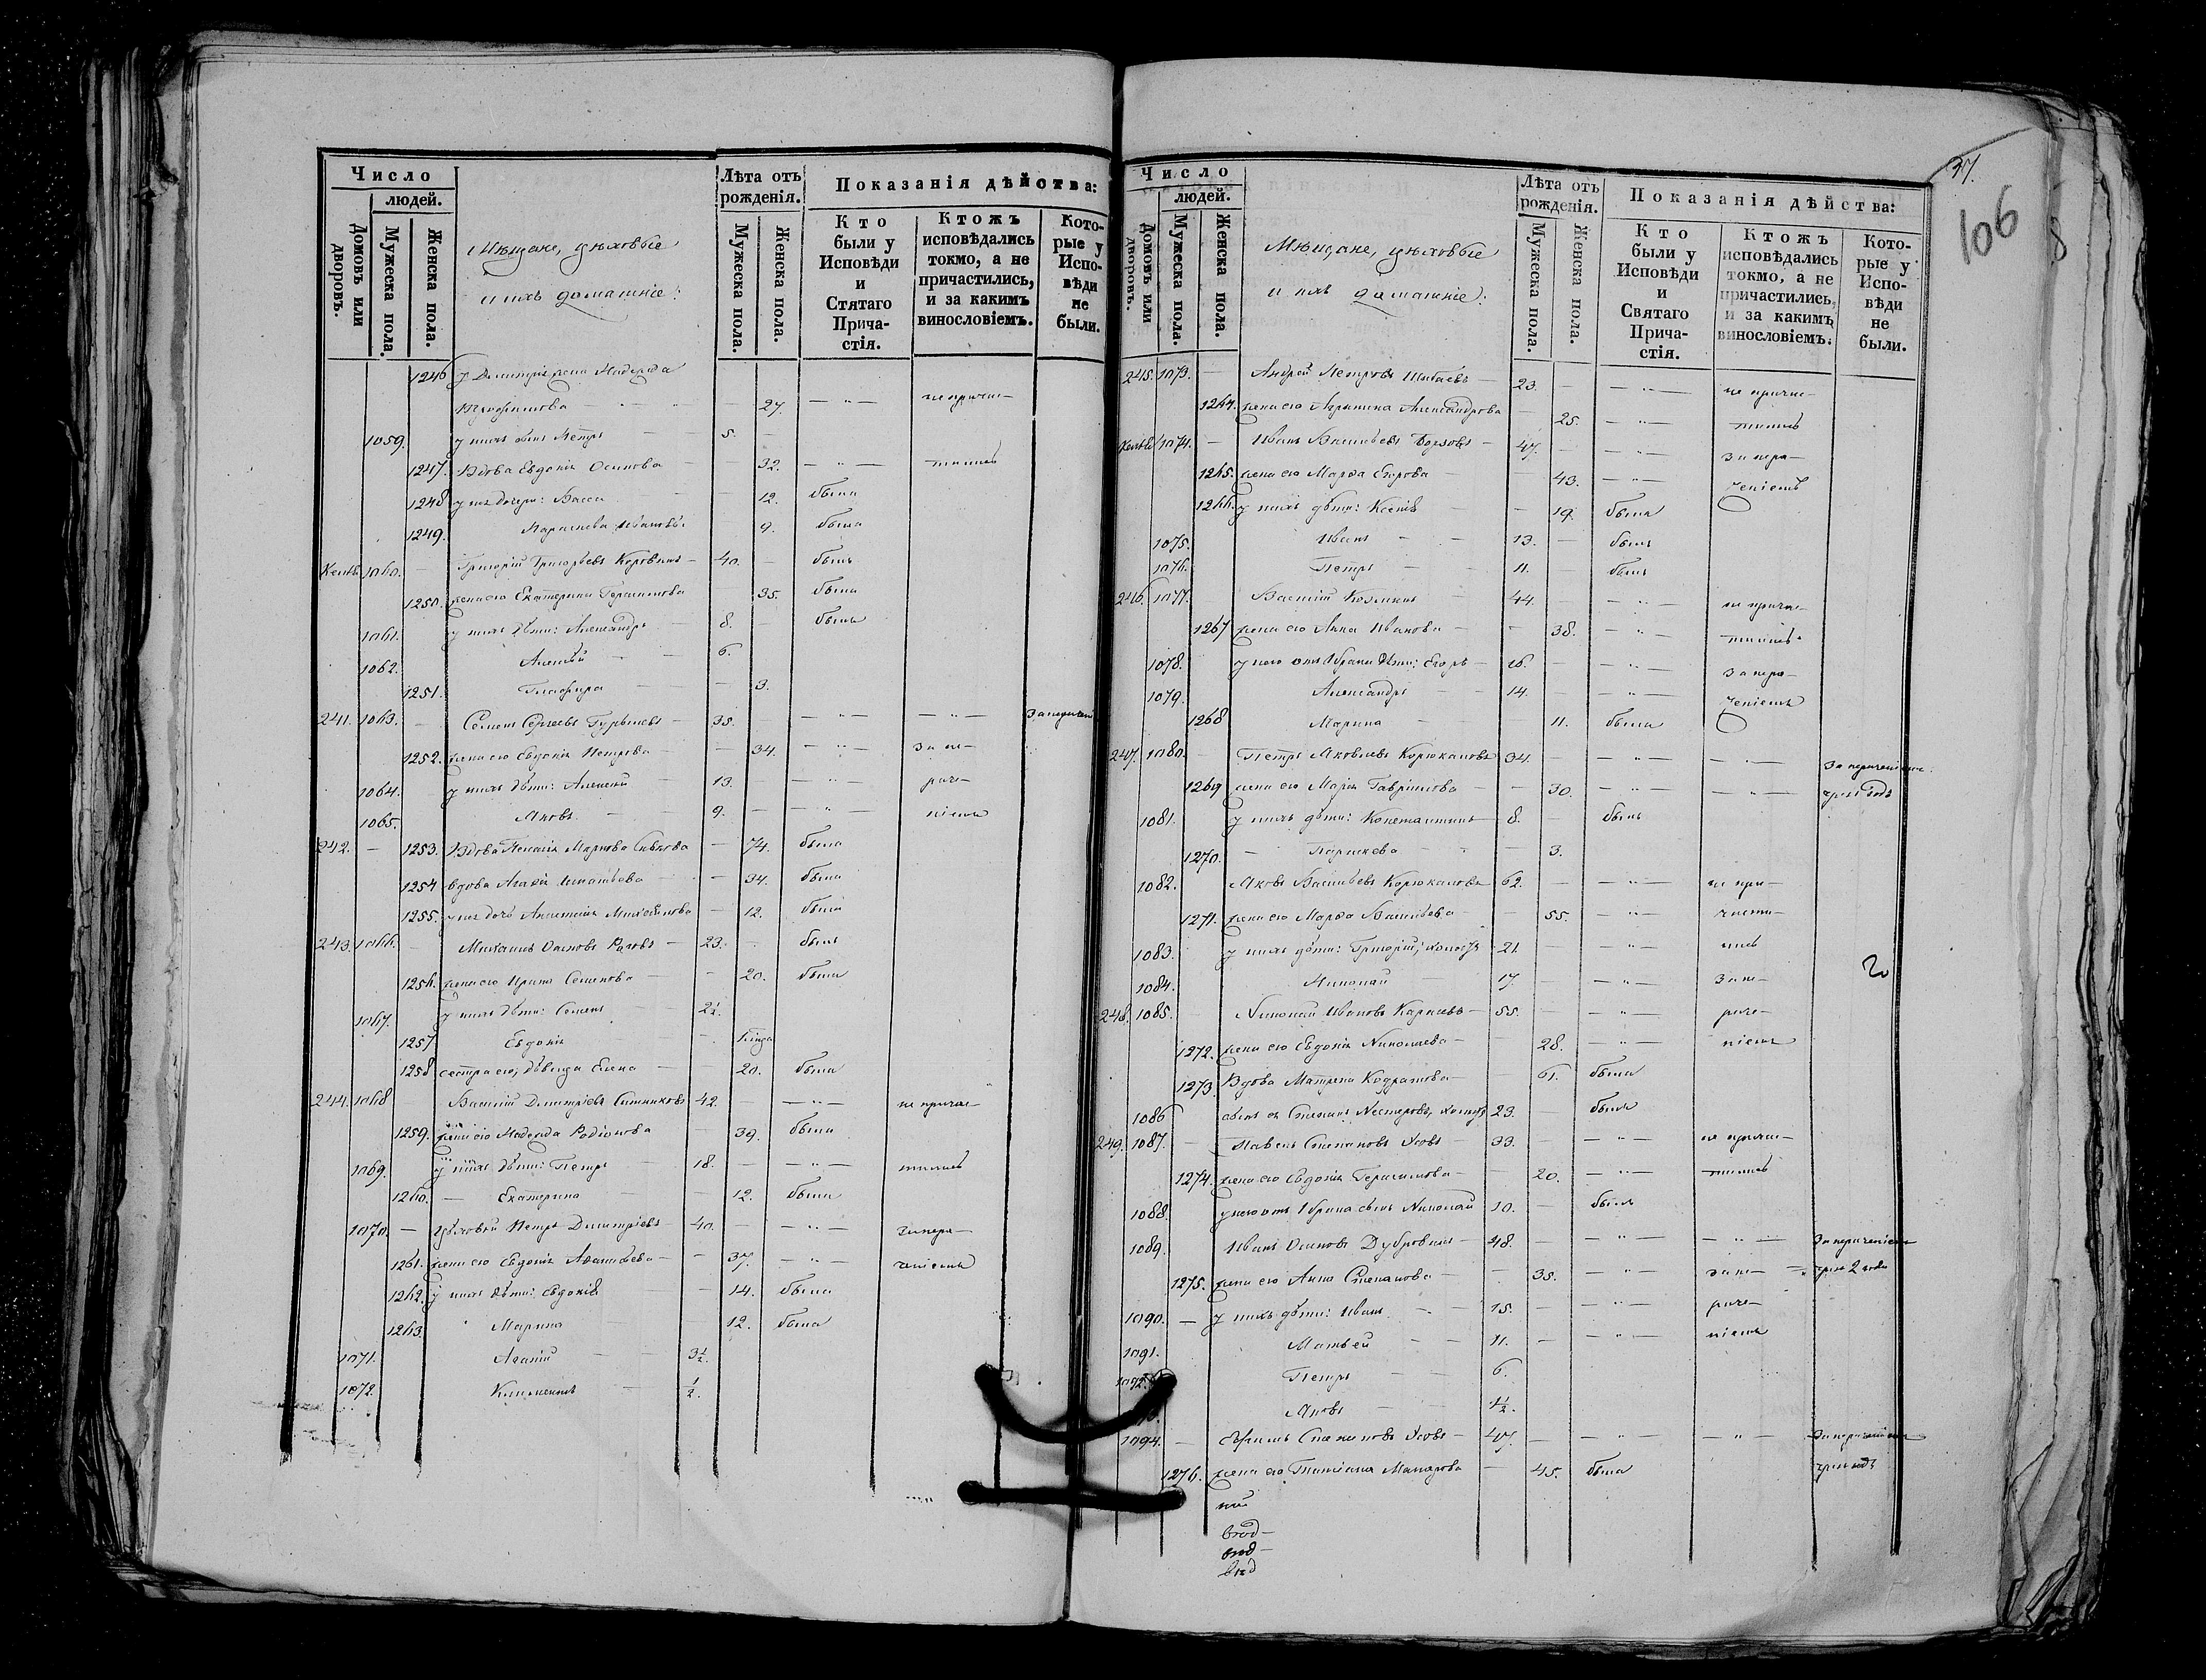 Число
людей.
Домовъ или дворовъ.
Мужеска пола.
Женска пола.
Мѣщане, цѣховые
и ихъ домашніе:
Лѣта отъ рожденія.
Мужеска пола.
Женска пола.
Показанія дѣйства:
Кто были у Исповѣди и Стятаго Прича-стія.
Ктожъ исповѣдались токмо, а не причастились, и за какимъ винословіемъ.
Кото-рые у Испо-вѣди не были.
1246 у Димитрія жена Надежда
27. — „ — не причас—
1059. у нихъ сынъ Петръ 5.
1247. Вдова Евдокія Осипова — 32. — „ — тились
1248 у нея дочери: Васса 12. была
1249. 9. была
1060. — Григорій Григорьевъ Коровинъ — 40. — былъ
1250. жена его Екатерина Герасимова 35. была
1061. у нихъ дѣти: Александръ — 8. — былъ
1062. Алексѣй 6.
1251. Глафира — 3.
241. 1063. — Семенъ Сергѣевъ — 35. — „ — — „ —
1252. жена его Евдокія Петрова — 34. — „ — за не—
1064. у нихъ дѣти: Алексѣй — 13. — — „ — раче—
1065. Яковъ 9. — — „ ніемъ
242. — 1253. Вдова — 74. была
1254 вдова — 34. была
1255. у нея дочь Анастасія — 12. была
243. 1066. — Михаилъ Осиповъ — 23. — былъ
1256. жена его Ирина Семенова — 20. была
1067. у нихъ дѣти: Семенъ 2½.
1257 Евдокія
1258 сестра его, дѣвица Елена — 20. была
244. 1068 Василій Димитріевъ Ситниковъ 42. — — „ — не причас—
1259. жена его Надежда Родіонова 39. была
1069. у нихъ дѣти: Петръ — 18. — — „ — тились
1260. — Екатерина — 12. была
1070. — Цѣховой Петръ Димитріевъ — 40. — — „ — за нера—
1261. жена его Евдокія — 37. — „ — ченіемъ
1262. у нихъ дѣти: Евдокія — 14. была
1263. Марина 12. была
1071. 3½.
1072. Климентъ ½.
37.
106
Число
людей.
Домовъ или дворовъ.
Мужеска пола.
Женска пола.
Мѣщане, цѣховые
и ихъ домашніе:
Лѣта отъ рожденія.
Мужеска пола.
Женска пола.
Показанія дѣйства:
Кто были у Исповѣди и Святаго Прича-стія.
Ктожъ исповѣдались токмо, а не причастились, и за какимъ винословіемъ.
Кото-рые у Испо-вѣди не были.
245. 1073. — Андрей Петровъ — 23. — — „ — не причас—
1264. жена его Агрипина Александрова — 25. — „ — тились
1074. — Иванъ Васильевъ — 47. — „ — за нера—
1265. жена его Марѳа Егорова — 43. — „ — ченіемъ
1266. у нихъ дѣти: Ксенія — 19. была
1075. Иванъ 13. — былъ
1076. Петръ 11. — былъ
246. 1077. Василій — 44. — „ — не причас—
1267 жена его Анна Иванова — 38. — „ — тились
1078. Егоръ — 16. — — „ — за нера—
1079. Александръ — 14. — — „ — ченіемъ
1268 Марина — 11. была
247. 1080. — Петръ Яковлевъ Корюкаловъ 34. — — „ — — „ — за нераченіемъ
1269 жена его Марія Гаврилова — 30. — „ — — „ —
1081. у нихъ дѣти: Константинъ — 8. — былъ
1270. — Параскева — 3.
1082. Яковъ Васильевъ Корюкаловъ 62. — — „ — не при—
1271. жена его Марѳа Васильева — 55. — „ — части—
1083. у нихъ дѣти: Григорій, холостъ 21. — — „ — лись
1084. Николай 17. — — „ — за не—
248. 1085. Николай Ивановъ — 55. — — „ — раче—
1272. жена его Евдокія Николаева — 28. — „ — ніемъ
1273. Вдова Матрена Кодратова — 61. была
1086 сынъ ея Нестеровъ, холостъ 23. — былъ
249. 1087. — Павелъ Степановъ Усовъ — 33. — „ — не причас—
1274. жена его Евдокія Герасимова — 20. — „ — тились
1088. сынъ Николай 10. — былъ
1089. Иванъ Осиповъ Дубровинъ — 48. — — „ — — „ — за нераченіемъ
1275. жена его Анна Степанова — 35. — „ — за не—
1090. — у нихъ дѣти: Иванъ — 15. — — „ — раче—
1091. Матвей — 11. — — „ — ніемъ
1092. Петръ — 6.
Яковъ
1094. — Степановъ Усовъ — 47. — — „ — — „ за нераченіемъ
1276. жена его Татіана — 45. была